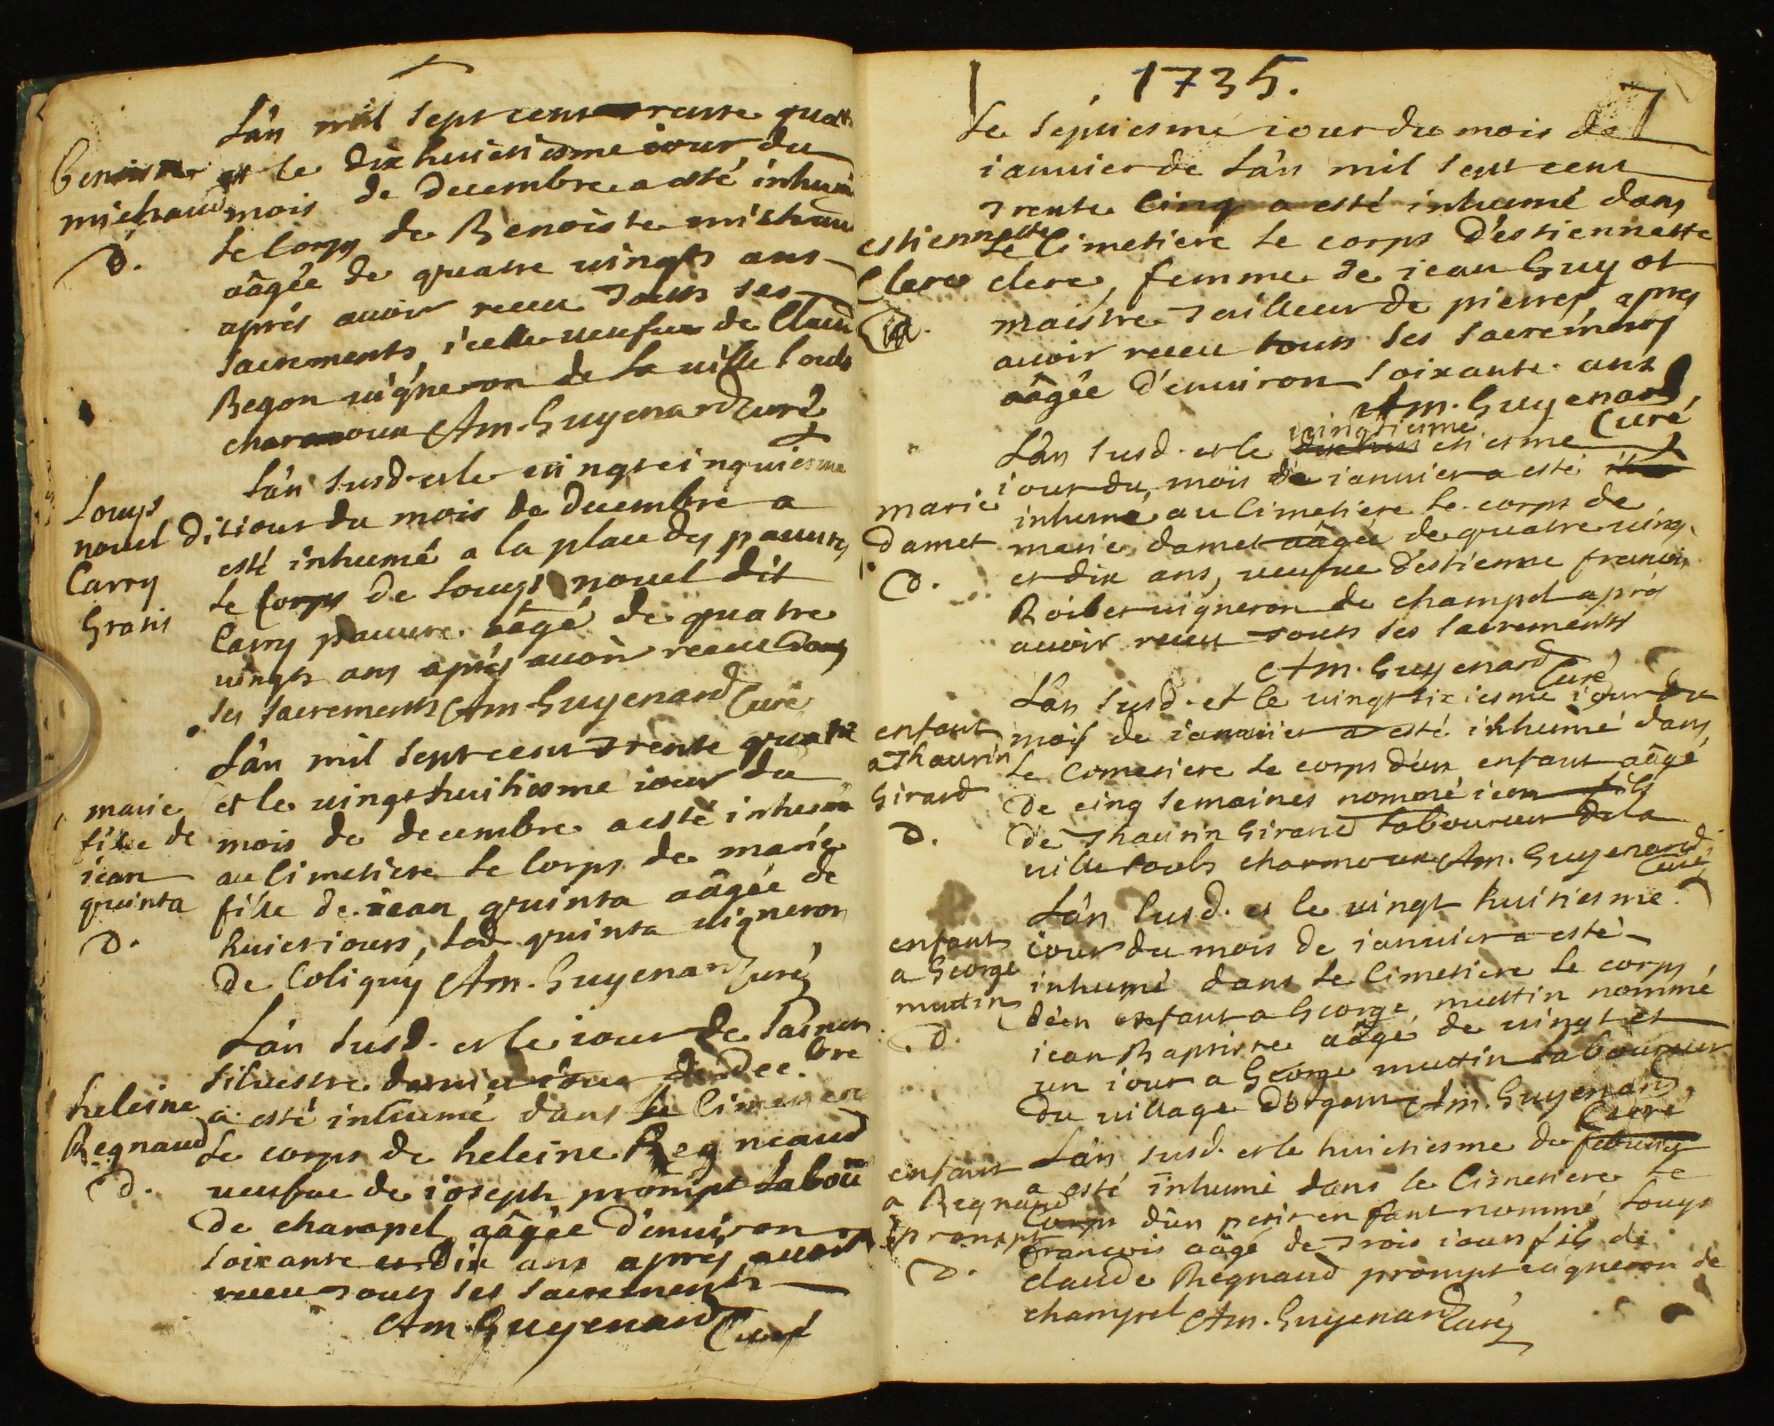 L'án mil sept cent trente quatr
Benoiste et le dix huictiesme iour du
michaud mois de decembre a esté inhumé
d. le corps de Benoiste michaud
aâgée de quatre vingts ans
aprés auoir receu touts ses
sacrements, icelle veufue de Claud
Regon vigneron de la ville soubs
charmoux Am. Guyenard Curé
L'án susd. et le vingt cinquiesme
Louys
nouel dit iour du mois de decembre a
esté inhumé a la place des pauures
Carry
le corps de Louys nouel dit
Gratis
Carry pauure aâgé de quatre
vingts ans aprés auoir receu touts
ses sacrements Am. Guyenard Curé
L'án mil sept cent trente quatre
marie et le vingt huitiesme iour du
fille de mois de decembre a esté inhumé
iean au cimetiere le corps de marie
quinta fille de iean quinta aâgée de
d. huict iours, led quinta vigneron
de Coligny Am. Guyenard Curé
L'án susd. et le iour de Sainct
Siluestre dernier iour de dec.bre
heleine a esté inhumé dans le Cimetiere
Regnaud le corps de heleine Regneaud
d. veufue de ioseph prompt Laboü
de champel aâgée d'enuiron
soixante et dix ans aprés auoir
receu touts ses sacrements
Am. Guyenard Curé
1735.
7
Le septiesme iour du mois de
ianuier de L'án mil sept cent
trente Cinq a esté inhumé dans
estiennette le Cimetiere le corps d'estiennette
Clerc clerc, femme de iean Guyot
maistre tailleur de pierres aprés
auoir receu touts ses sacrements
aâgée d'enuiron soixante ans
Am. Guyenard, Curé
vingtiesme
L'án susd. et le dix huictiesme
iour du mois de ianuier a esté
marie inhumé au Cimetiere le corps de
damet marie damet aâgée de quatre ving
d. et dix ans, veufue d'estienne francois
Roibet vigneron de champel aprés
auoir receu touts ses sacrements
Am. Guyenard Curé
L'án susd. et le vingt sixiesme iour du
enfant mois de ianuier a esté inhumé dans
a Thaurin le Cometiere le corps d'un enfant aâgé
Girard de cinq semaines nommé iean fils
d. de Thaurin Girard laboureur de la
ville soubs charmoux Am. Guyenard Curé
L'án susd. et le vingt huitiesme
enfant iour du mois de ianuier a esté
a George inhumé dans le Cimetiere le corps
muttin d'un enfant a George muttin nommé
d. iean Baptiste aâgé de vingt et
un iour a George muttin laboureur
du village d'orgent Am. Guyenard Curé
enfant L'án susd. et le huictiesme de feburier
a Regnaud a esté inhumé dans le Cimetiere le
prompt corps d'un petit enfant nommé Louys
francois aâgé de trois iours fils de
d. claude Regnaud prompt vigneron de
champel Am. Guyenard Curé